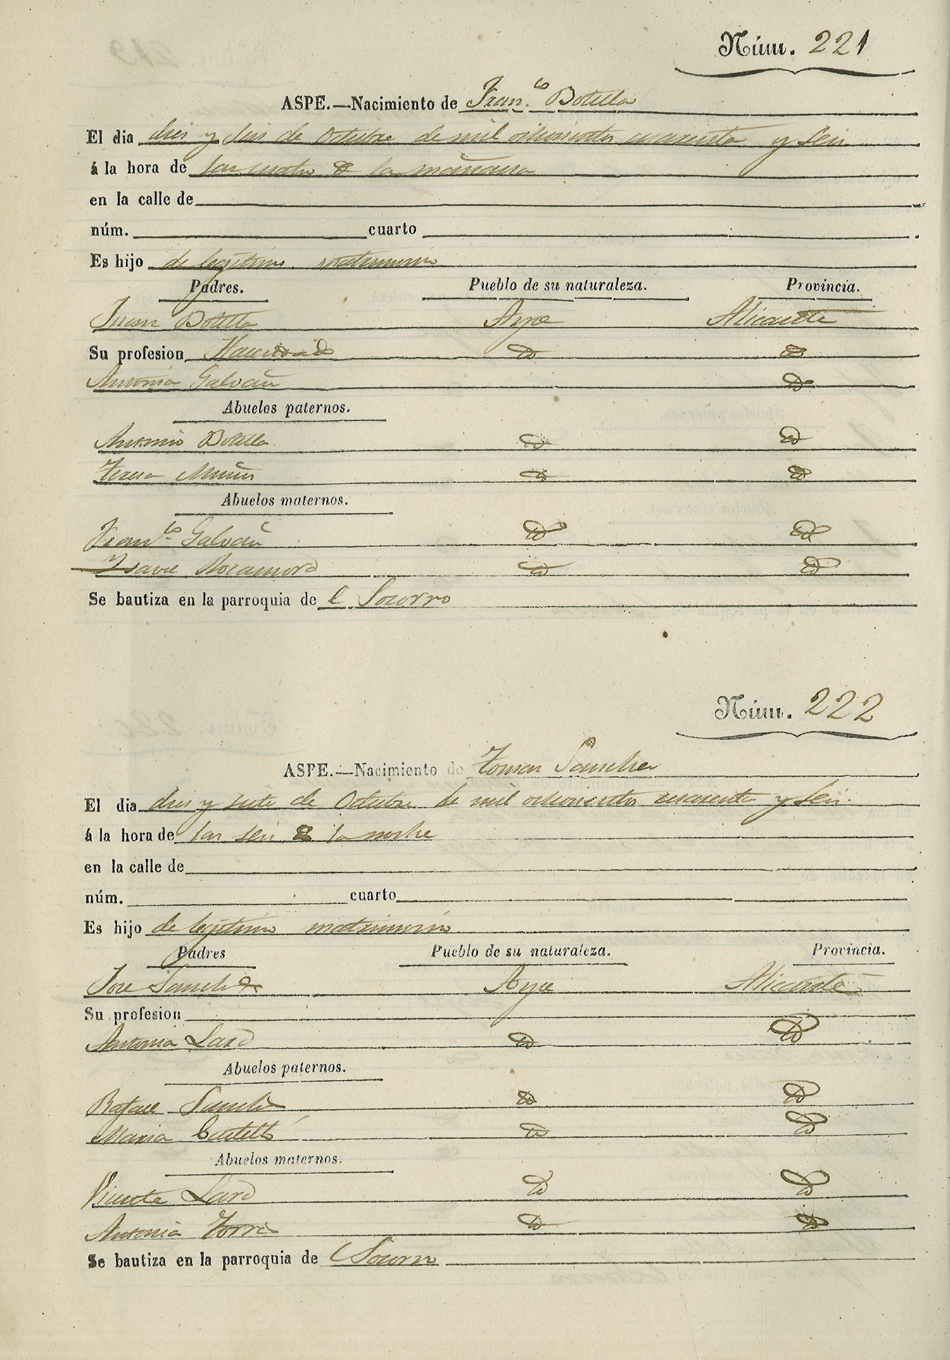 Núm. 221
ASPE.—Nacimiento de Fran.co Botella
El dia dies y seis de Octubre de mil ochocientos cuarenta y seis
á la hora de las cuatro de la mañana
en la calle de
núm. cuarto
Es hijo de legitimo matrimonio
Padres. Pueblo de su naturaleza. Provincia.
Juan Botella Aspe Alicante
Su profesion Hacendado id id
Antonia Galvañ id
Abuelos paternos.
Antonio Botella id id
Teresa Muñoz id id
Abuelos maternos.
Fran.co Galvañ id id
Ysavel Rocamora id id
Se bautiza en la parroquia de el Socorro
Núm. 222
ASPE.—Nacimiento de Tomas Sanches
El dia dies y siete de Octubre de mil ochocientos cuarenta y seis
á la hora de las seis de la noche
en la calle de
núm. cuarto
Es hijo de legitimo matrimonio
Padres Pueblo de su naturaleza. Provincia.
Jose Sanches Aspe Alicante
Su profesion
Antonia id id
Abuelos paternos.
Rafael Sanches id id
Maria Castelló id id
Abuelos maternos.
Vicente id id
Antonia Torres id id
Se bautiza en la parroquia de Socorro